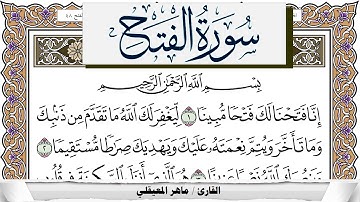 سورة الفتح
بسم الله الرحمن الرحيم
إِنَّا فَتَحْنَا لَكَ فَتْحًا مُّبِينًا ١ لِّيَغْفِرَ لَكَ اللَّهُ مَا تَقَدَّمَ مِن ذَنبِكَ
وَمَا تَأَخَّرَ وَيُتِمَّ نِعْمَتَهُ عَلَيْكَ وَيَهْدِيَكَ صِرَاطًا مُّسْتَقِيمًا ٢
القارئ / ماهر المعيقلي